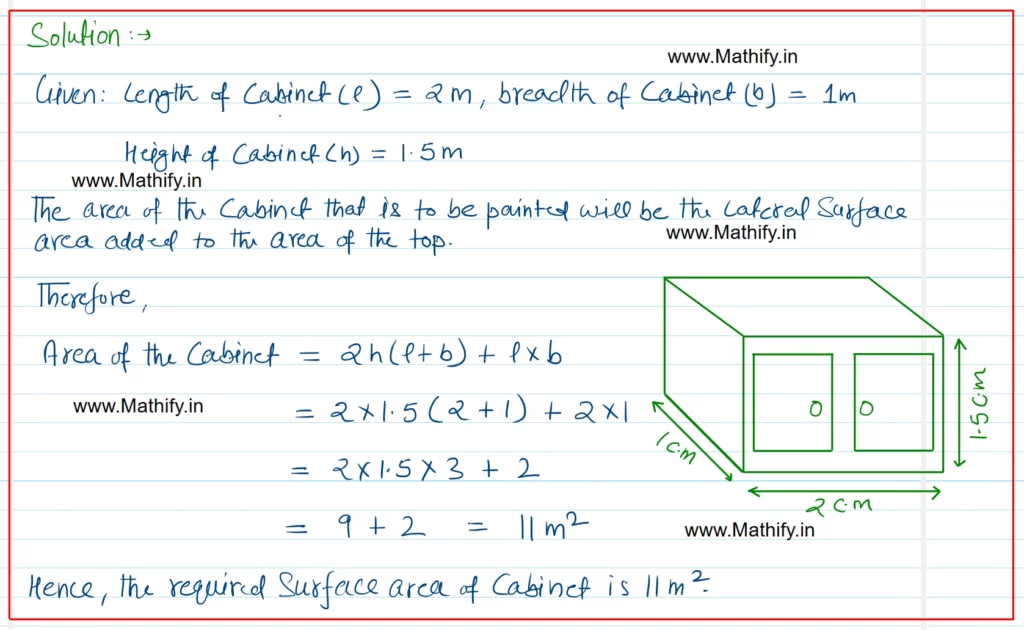 Solution :→
www.Mathify.in
Given: Length of Cabinet (l) = 2m, breadth of Cabinet (b) = 1m
Height of Cabinet (h) = 1.5m
www.Mathify.in
The area of the Cabinet that is to be painted will be the Lateral Surface
area added to the area of the top.
www.Mathify.in
Therefore,
Area of the Cabinet = 2h(l+b) + l×b
www.Mathify.in
= 2×1.5(2+1) + 2×1
= 2×1.5×3 + 2
= 9 + 2 = 11m²
1.5cm
1c.m
2c.m
www.Mathify.in
Hence, the required Surface area of Cabinet is 11m².